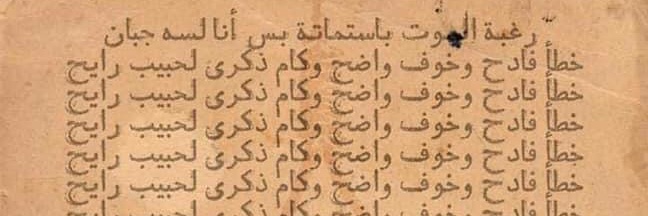 رغبة الموت باستماتة بس أنا لسه جبان
خطأ فادح وخوف واضح وكام ذكرى لحبيب رايح
خطأ فادح وخوف واضح وكام ذكرى لحبيب رايح
خطأ فادح وخوف واضح وكام ذكرى لحبيب رايح
خطأ فادح وخوف واضح وكام ذكرى لحبيب رايح
خطأ فادح وخوف واضح وكام ذكرى لحبيب رايح
خطأ فادح وخوف واضح وكام ذكرى لحبيب رايح